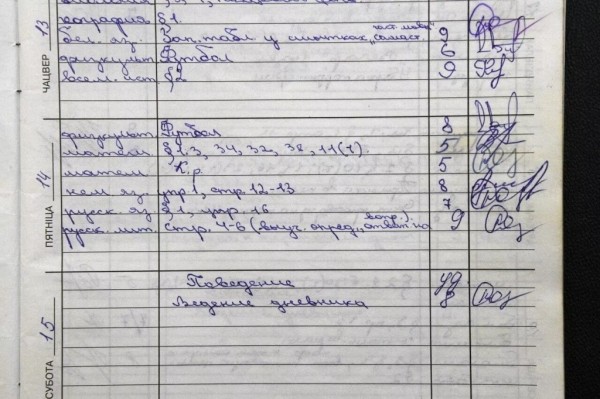 география §1.
бел. яз. Зап. табл у сшытках, "част. мовы" "самаст." 9
физкульт. Футбол 6
всем. ист. §2 9
13
ЧАЦВЕР
физкульт. Футбол 8
матем §1.3, 34, 32, 38, 11(г). 5
матем К.р. 5
нем. яз. упр.1, стр. 12-13 8
русск. яз §1, упр. 16 7
русск. лит. стр. 4-6 (выуч. опред., ответ на вопр.). 9
14
ПЯТНІЦА
Поведение
Ведение дневника 8
15
СУБОТА